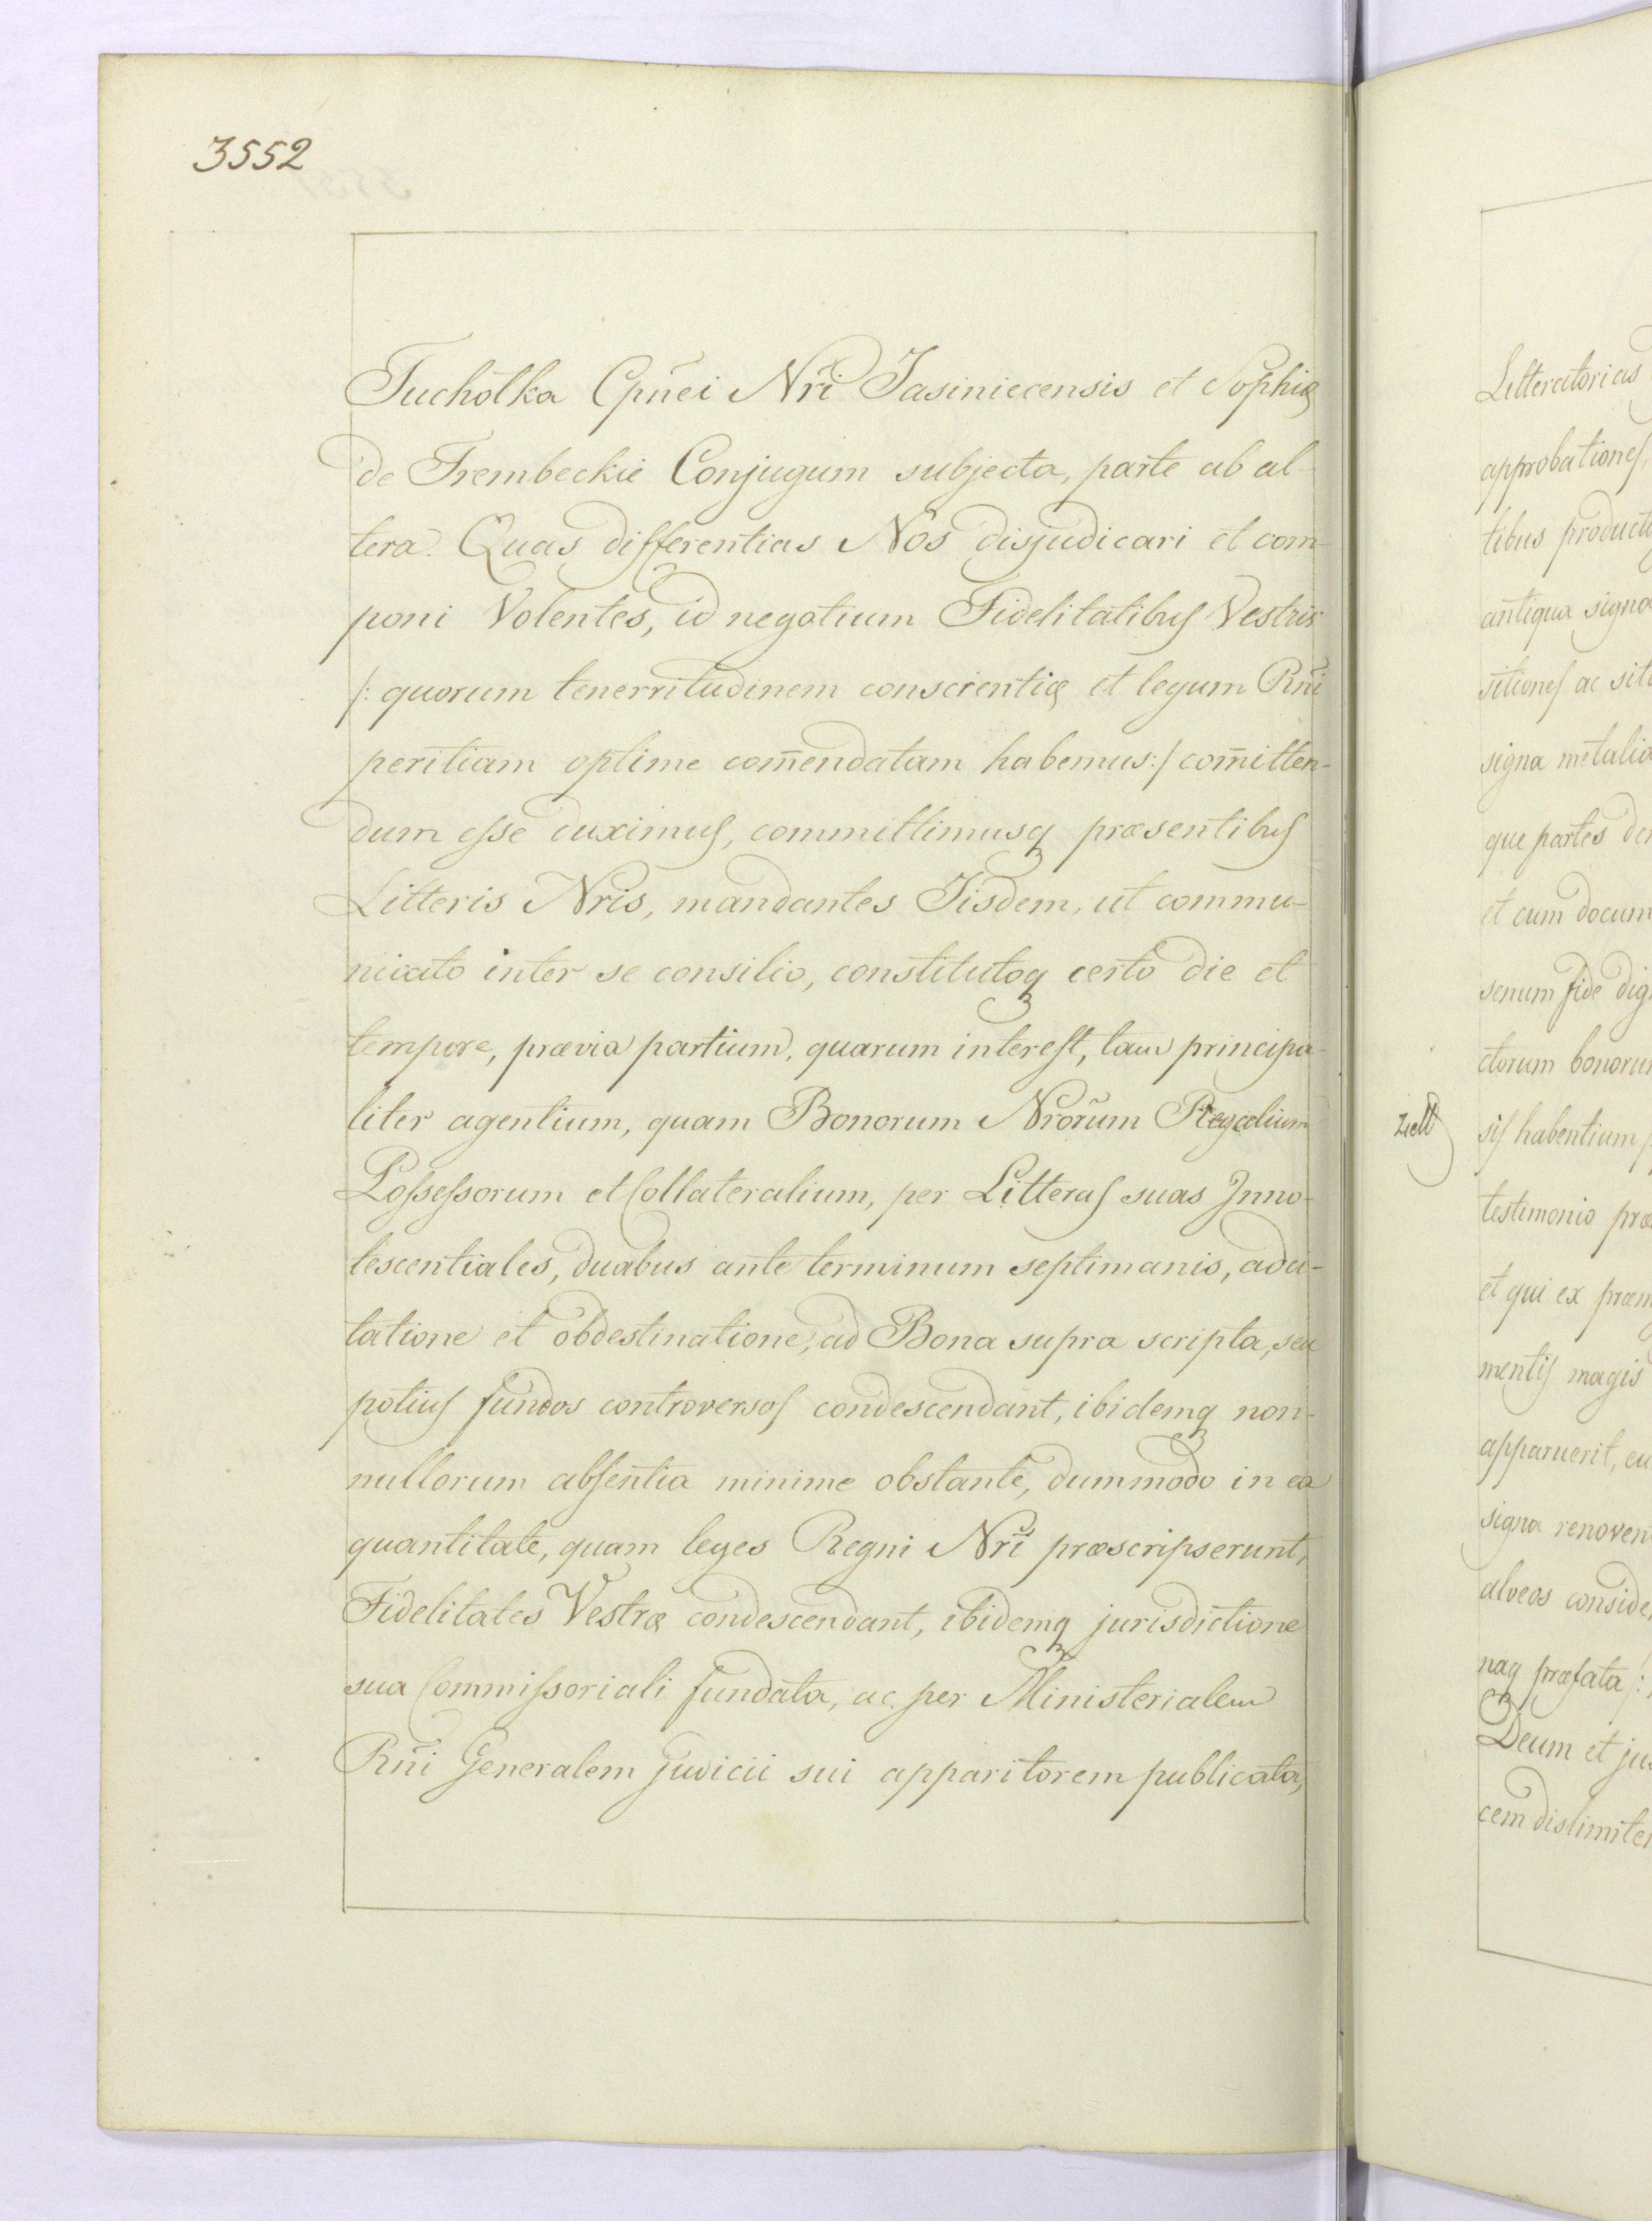 3552
Tuchołka Cpn̄ei Nr̄i Jasiniecensis et Sophiæ
de Trembeckie Conjugum subjecta, parte ab al-
tera. Quas differentias Nos disjudicari et com-
poni Volentes, id negotium Fidelitatibus Vestris
/: quorum tenerritudinem conscientiæ et legum Rn̄i
peritiam optime com̄endatam habemus :/ com̄itten-
dum esse duximus, committimusq præsentibus
Litteris Nris, mandantes Iisdem, ut commu-
nicato inter se consilio, constitutoq certo die et
tempore, prævia partium, quarum interest, tam principa-
liter agentium, quam Bonorum Nrōrum Regalium
Possessorum et Collateralium, per Litteras suas Inno-
tescentiales, duabus ante terminum septimanis, adci-
tatione et obdestinatione, ad Bona supra scripta, seu
potius fundos controversos condescendant, ibidemq non-
nullorum absentia minime obstante, dummodo in ea
quantitate, quam leges Regni Nr̄i præscripserunt,
Fidelitates Vestræ condescendant, ibidemq jurisdictione
sua Commissoriali fundata, ac per Ministerialem
Rn̄i Generalem judicii sui apparitorem publicata,
Litteratorias
approbationes,
tibus producti
antiqua signa
sitiones ac sit
signa metalia
que partes de
et cum docum
senum fide dig
ctorum bonorum
sis habentium
testimonio præ
et qui ex præm
mentis magis
apparuerit, eu
signa renoven
alveos conside
naq præfata /:
Deum et jus
cem dislimite